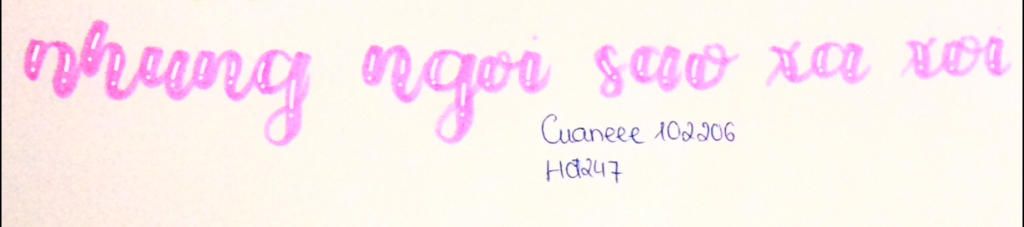 nhung ngoi sao xa xoi
Cuaneee 102206
Hd247